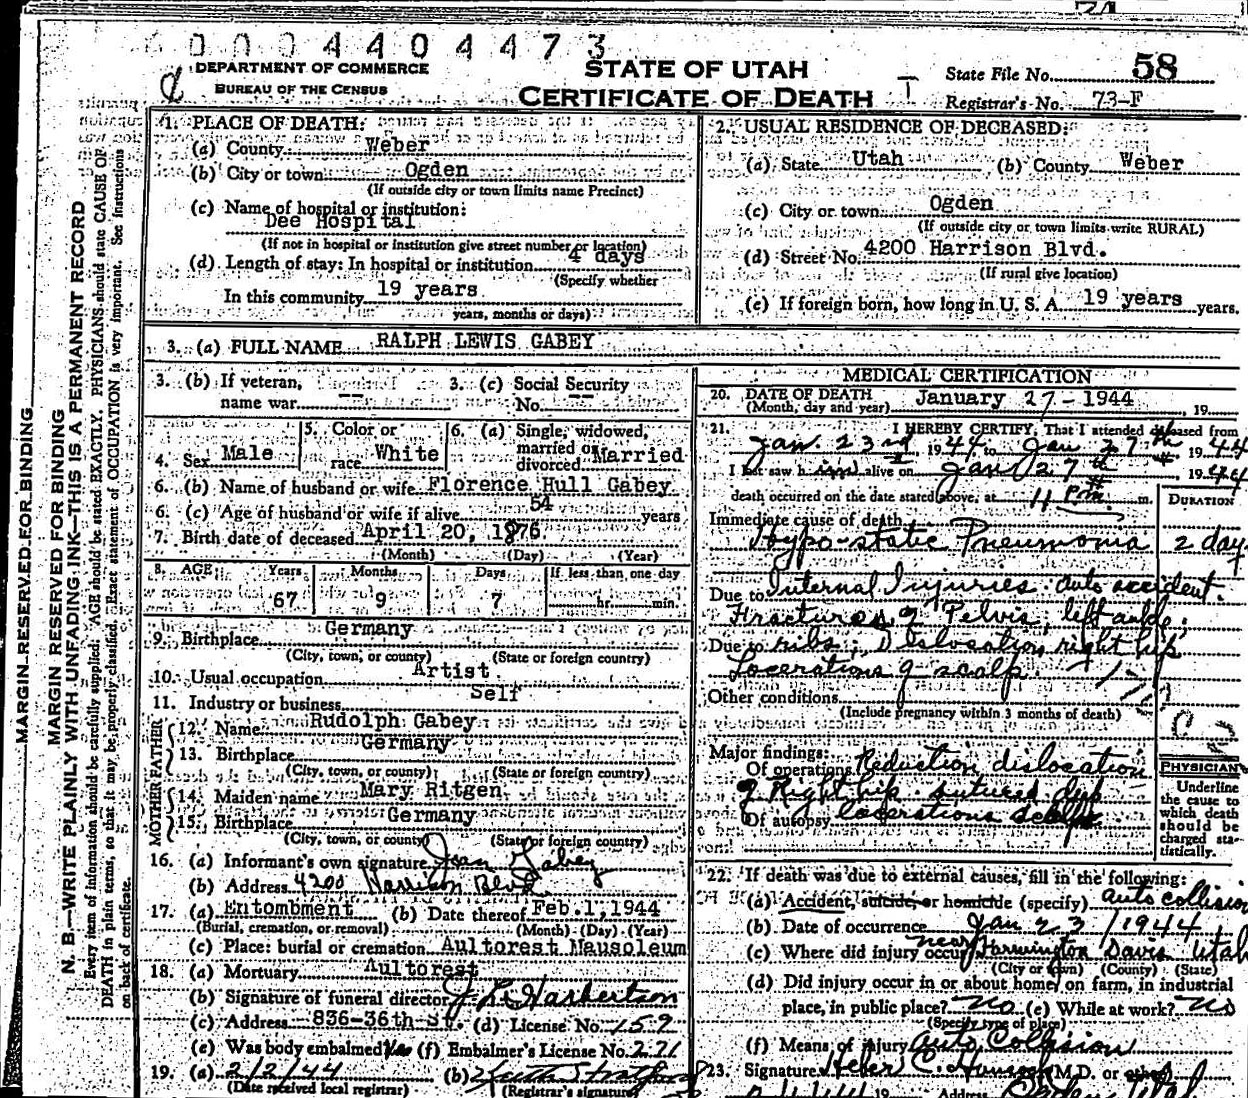 0 0 0 4 4 0 4 4 7 3
DEPARTMENT OF COMMERCE
BUREAU OF THE CENSUS
STATE OF UTAH
CERTIFICATE OF DEATH
State File No. 58
Registrar's No. 73-F
MARGIN RESERVED FOR BINDING
MARGIN RESERVED FOR BINDING
N. B.—WRITE PLAINLY WITH UNFADING INK—THIS IS A PERMANENT RECORD
Every item of information should be carefully supplied. AGE should be stated EXACTLY. PHYSICIANS should state CAUSE OF
DEATH in plain terms, so that it may be properly classified. Exact statement of OCCUPATION is very important. See instructions
on back of certificate.
1. PLACE OF DEATH:
(a) County Weber
(b) City or town Ogden
(If outside city or town limits name Precinct)
(c) Name of hospital or institution:
Dee Hospital
(If not in hospital or institution give street number or location)
(d) Length of stay: In hospital or institution 4 days
(Specify whether
In this community 19 years
years, months or days)
2. USUAL RESIDENCE OF DECEASED:
(a) State Utah (b) County Weber
(c) City or town Ogden
(If outside city or town limits write RURAL)
(d) Street No. 4200 Harrison Blvd.
(If rural give location)
(e) If foreign born, how long in U. S. A. 19 years years.
3. (a) FULL NAME RALPH LEWIS GABEY
3. (b) If veteran, name war -- 3. (c) Social Security No. --
4. Sex Male 5. Color or race White 6. (a) Single, widowed, married or divorced Married
6. (b) Name of husband or wife Florence Hull Gabey
6. (c) Age of husband or wife if alive 54 years
7. Birth date of deceased April 20, 1876
(Month) (Day) (Year)
8. AGE Years Months Days If less than one day
67 9 7 hr. min.
9. Birthplace Germany
(City, town, or county) (State or foreign country)
10. Usual occupation Artist
11. Industry or business Self
FATHER
12. Name Rudolph Gabey
13. Birthplace Germany
(City, town, or county) (State or foreign country)
MOTHER
14. Maiden name Mary Ritgen
15. Birthplace Germany
(City, town, or county) (State or foreign country)
16. (a) Informant's own signature Jean Gabey
(b) Address 4200 Harrison Blvd.
17. (a) Entombment (b) Date thereof Feb.1,1944
(Burial, cremation, or removal) (Month) (Day) (Year)
(c) Place: burial or cremation Aultorest Mausoleum
18. (a) Mortuary Aultorest
(b) Signature of funeral director
(c) Address 836-36th St. (d) License No. 159
(e) Was body embalmed Yes (f) Embalmer's License No. 221
19. (a) 2/2/44 (b)
(Date received local registrar) (Registrar's signature)
MEDICAL CERTIFICATION
20. DATE OF DEATH
(Month, day and year) January 27-1944, 19
21. I HEREBY CERTIFY, That I attended deceased from
Jan. 23rd 1944 to Jan 27th 1944
I last saw him alive on Jan 27th 1944
death occurred on the date stated above, at 11 P.m. m.
DURATION
Immediate cause of death
Hypo-static Pneumonia 2 day
Due to Internal Injuries auto accident.
Fractures of Pelvis, left ankle,
Due to ribs; Dislocation right hip
Lacerations of scalp.
Other conditions
(Include pregnancy within 3 months of death)
Major findings:
Of operations Reduction dislocation
of Right hip. sutured deep
Of autopsy lacerations scalp
PHYSICIAN
Underline
the cause to
which death
should be
charged sta-
tistically.
22. If death was due to external causes, fill in the following:
(a) Accident, suicide, or homicide (specify) auto collision
(b) Date of occurrence Jan 23 / 1944
(c) Where did injury occur near Farmington Davis Utah
(City or town) (County) (State)
(d) Did injury occur in or about home, on farm, in industrial
place, in public place? no (e) While at work? no
(Specify type of place)
(f) Means of injury Auto Collision
23. Signature Heber C. (M.D. or other)
19 Address Ogden Utah